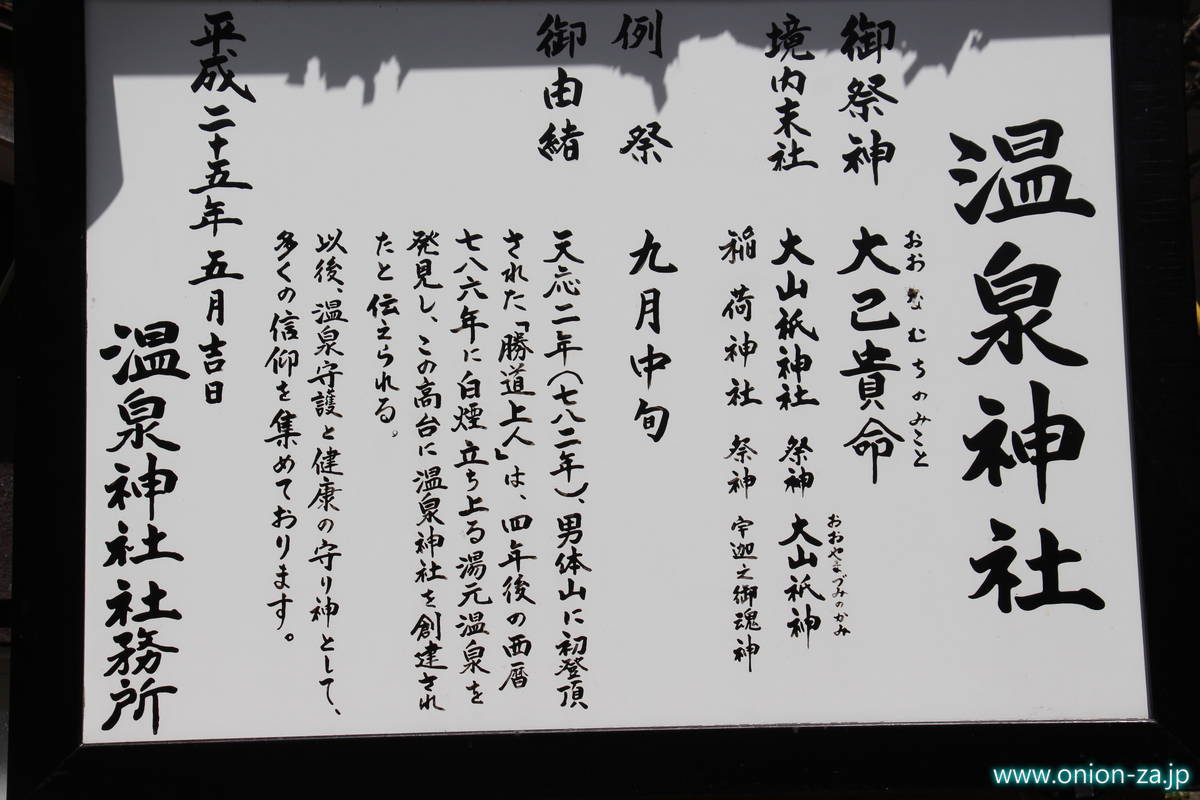 温泉神社
御祭神 大己貴命
おおなむちのみこと
境内末社 大山祇神社 祭神 大山祇神
おおやまづみのかみ
稲荷神社 祭神 宇迦之御魂神
例祭 九月中旬
御由緒 天応二年(七八二年)、男体山に初登頂
された「勝道上人」は、四年後の西暦
七八六年に白煙立ち上る湯元温泉を
発見し、この高台に温泉神社を創建され
たと伝えられる。
以後、温泉守護と健康の守り神として、
多くの信仰を集めております。
平成二十五年 五月吉日
温泉神社社務所
www.onion-za.jp